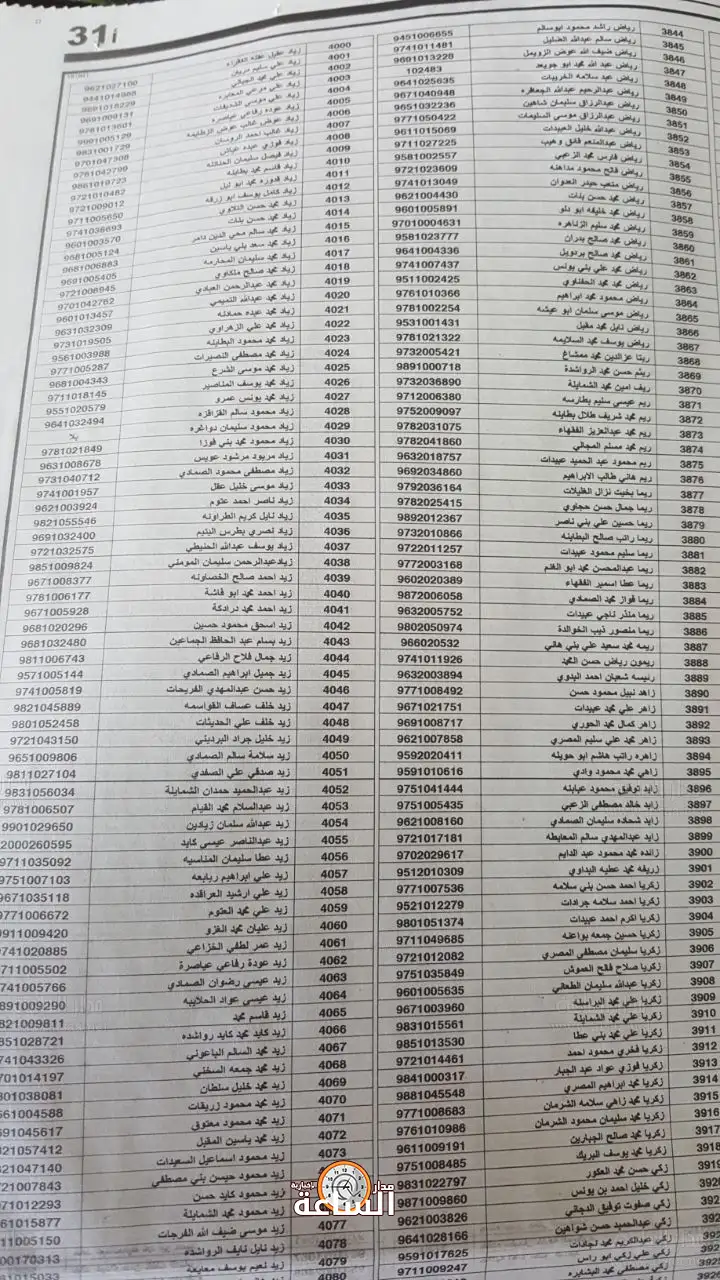 31أ
3844 رياض راشد محمود ابوسالم 9451006655
3845 رياض سالم عبدالله الضليل 9741011481
3846 رياض ضيف الله عوض الزويمل 9691013228
3847 رياض عبد الله محمد ابو جويعد 102483
3848 رياض عبد سلامه الخريبات 9641025635
3849 رياض عبدالرحيم عبدالله الجعافره 9671040948
3850 رياض عبدالرزاق سليمان شاهين 9651032236
3851 رياض عبدالرزاق موسى السليمات 9771050422
3852 رياض عبدالله خليل العبيدات 9611015069
3853 رياض عبدالمنعم فائق وهيب 9711027225
3854 رياض فارس محمد الزعبي 9581002557
3855 رياض فالح محمود مداهنه 9721023609
3856 رياض متعب حيدر العدوان 9741013049
3857 رياض محمد حسن بنات 9621004430
3858 رياض محمد خليفه ابو دلو 9601005891
3859 رياض محمد سليم الزناهره 97010004631
3860 رياض محمد صالح بدران 9581023777
3861 رياض محمد صالح بردويل 9641004336
3862 رياض محمد علي بني يونس 9741007437
3863 رياض محمد محمد الحفناوي 9511002425
3864 رياض محمود محمد ابراهيم 9761010366
3865 رياض موسى سلمان ابو عيشه 9781002254
3866 رياض نايل محمد مقبل 9531001431
3867 رياض يوسف محمد السلايمه 9781021322
3868 ريتا عزالدين محمد ممشاغ 9732005421
3869 ريثم حسن محمد الرواشدة 9891000718
3870 ريف امين محمد الشمايلة 9732036890
3871 ريم عيسى سليم بطارسه 9712006380
3872 ريم محمد شريف طلال بطاينه 9752009097
3873 ريم محمد عبدالعزيز الفقهاء 9782031075
3874 ريم محمد مسلم المجالي 9782041860
3875 ريم محمود عبد الحميد عبيدات 9632018757
3876 ريم هاني طالب الابراهيم 9692034860
3877 ريما بخيت نزال الغليلات 9792036164
3878 ريما جمال حسن حجاوي 9782025415
3879 ريما حسين علي بني ناصر 9892012367
3880 ريما راتب صالح البطاينه 9732010866
3881 ريما سليم محمود عبيدات 9722011257
3882 ريما عبدالمحسن محمد ابو الغنم 9772003168
3883 ريما عطا اسمير الفقهاء 9602020389
3884 ريما فواز محمد الصمادي 9872006058
3885 ريما منذر ناجي عبيدات 9632005752
3886 ريما منصور ذيب الخوالدة 9802050974
3887 ريمه محمد سعيد علي بني هاني 966020532
3888 ريمون رياض حسن المحمد 9741011926
3889 رئيسه شعبان احمد البدوي 9632003894
3890 زاهد نبيل محمود حسن 9771008492
3891 زاهر علي محمد عبيدات 9671021751
3892 زاهر كمال محمد الحوري 9691008717
3893 زاهر محمد علي سليم المصري 9621007858
3894 زاهره راتب هاشم ابو حويله 9592020411
3895 زاهي محمد محمود وادي 9591010616
3896 زايد توفيق محمود عبابنه 9751041444
3897 زايد خالد مصطفى الزعبي 9751005435
3898 زايد شحاده سليمان الصمادي 9621008160
3899 زايد عبدالمهدي سالم المعايطه 9721017181
3900 زائده محمد محمود عبد الدايم 9702029617
3901 زريفه محمد عطيه البداوي 9512010309
3902 زكريا احمد حسن بني سلامه 9771007536
3903 زكريا احمد سلامه جرادات 9521012279
3904 زكريا اكرم احمد عبيدات 9801051374
3905 زكريا حسين جمعه بواعنه 9711049685
3906 زكريا سليمان مصطفى المصري 9721012082
3907 زكريا صلاح فالح العموش 9751035849
3908 زكريا عبدالله سليمان الطعاني 9601005635
3909 زكريا علي محمد البراسله 9671003960
3910 زكريا علي محمد الشمايلة 9831015561
3911 زكريا علي محمد بني عطا 9851013530
3912 زكريا فخري محمود احمد 9721014461
3913 زكريا فوزي عواد عبد الجبار 9841000317
3914 زكريا محمد ابراهيم المصري 9881045548
3915 زكريا محمد زاهي سلامه الشرمان 9771008683
3916 زكريا محمد سليمان محمود الشرمان 9761010986
3917 زكريا محمد صالح الجبارين 9611009191
زكريا محمد يوسف البريك 9751008485
زكي حسن محمد العكور 9831022797
زكي خليل احمد بن يونس 9871009860
زكي صفوت توفيق الدجاني 9621003826
زكي عبدالحميد حسن شواهين 9641028166
زكي عبدالكريم محمد نجادات 9591017625
زكي علي زكي ابو راس 9711009247
زكي مصطفى محمد البشايره
4000 زياد عقيل عقله الفقراء 9621027100
4001 زياد علي سليم مريان 9441014988
4002 زياد علي محمد الجيالي 9691018229
4003 زياد علي مرعي المخابره 9691009131
4004 زياد علي موسى الشديفات 9761013601
4005 زياد عوده رفاعي عياصره 9991005129
4006 زياد عوض غالب عوض الزطايمه 9831001729
4007 زياد غالب احمد الروسان 9701047308
4008 زياد فوزي عبده عياش 9761042799
4009 زياد فيصل سليمان الختاتنه 9861019723
4010 زياد قاسم محمد بطاينه 9721010482
4011 زياد قدوره محمد ابو ليل 9721009012
4012 زياد كامل يوسف ابو زرقه 9711005650
4013 زياد محمد حسن التلاوي 9741036693
4014 زياد محمد حسن بنات 9601003570
4015 زياد محمد سالم محي الدين دامر 9681005124
4016 زياد محمد سعد بني ياسين 9681006883
4017 زياد محمد سليمان المحارمه 9691005405
4018 زياد محمد صالح ملكاوي 9721008945
4019 زياد محمد عبدالرحمن العبادي 9701042762
4020 زياد محمد عبدالله التميمي 9601013457
4021 زياد محمد عبده حمادنه 9631032309
4022 زياد محمد علي الزهراوي 9731019505
4023 زياد محمد محمود البطاينه 9561003988
4024 زياد محمد مصطفى النصيرات 9771005287
4025 زياد محمد موسى الشرع 9681004343
4026 زياد محمد يوسف المناصير 9711018145
4027 زياد محمد يونس عمرو 9551020579
4028 زياد محمود سالم القزاقزه 9641032494
4029 زياد محمود سليمان دواغره بلا
4030 زياد محمود محمد بني فوزا 9781021849
4031 زياد مربود مرشود عويس 9631008678
4032 زياد مصطفى محمود الصمادي 9731040712
4033 زياد موسى خليل عقل 9741001957
4034 زياد ناصر احمد عتوم 9621003924
4035 زياد نايل كريم الطراونه 9821055546
4036 زياد نصري بطرس اليتيم 9691032400
4037 زياد يوسف عبدالله الحنيطي 9721032575
4038 زيادعبدالرحمن سليمان المومني 9851009824
4039 زيد احمد صالح الخصاونه 9671008377
4040 زيد احمد محمد ابو فاشة 9781006177
4041 زيد احمد محمد درادكة 9671005928
4042 زيد اسحق محمود حسين 9681020296
4043 زيد بسام عبد الحافظ الجماعين 9681032480
4044 زيد جمال فلاح الرفاعي 9811006743
4045 زيد جميل ابراهيم الصمادي 9571005144
4046 زيد حسن عبدالمهدي الفريحات 9741005819
4047 زيد خلف عساف القواسمه 9821045889
4048 زيد خلف علي الحديثات 9801052458
4049 زيد خليل جراد البرديني 9721043150
4050 زيد سلامة سالم الصمادي 9651009806
4051 زيد صدقي علي الصفدي 9811027104
4052 زيد عبدالحميد حمدان الشمايلة 9831056034
4053 زيد عبدالسلام محمد القيام 9781006507
4054 زيد عبدالله سلمان زيادين 9901029650
4055 زيد عبدالناصر عيسى كايد 2000260595
4056 زيد عطا سليمان المناسيه 9711035092
4057 زيد علي ابراهيم ربابعه 9751007103
4058 زيد علي ارشيد العراقده 9671035118
4059 زيد علي محمد العتوم 9771006672
4060 زيد عليان محمد الغزو 9911009420
4061 زيد عمر لطفي الخزاعي 741020885
4062 زيد عودة رفاعي عياصرة 711005502
4063 زيد عيسى رضوان الصمادي 741005766
4064 زيد عيسى عواد الحلايبه 891009290
4065 زيد قاسم محمد 821009811
4066 زيد كايد محمد كايد رواشده 851028721
4067 زيد محمد السالم الباعوني 741043326
4068 زيد محمد جمعه السخني 701014197
4069 زيد محمد خليل سلطان 801038081
4070 زيد محمد محمود زريقات 661004588
4071 زيد محمد محمود معتوق 691045617
4072 زيد محمد ياسين المقبل 821057412
4073 زيد محمود اسماعيل السعيدات 821047140
زيد محمود حبيس بني مصطفى 721007843
زيد محمود كايد حسن 701012293
زيد محمود محمد الشمايلة 961015877
4077 زيد موسى ضيف الله الفرجات 11005150
4078 زيد نايل نايف الرواشده 00170313
4079 زيد نعيم يوسف معايعه
4080
مدار الساعة
الاخبارية